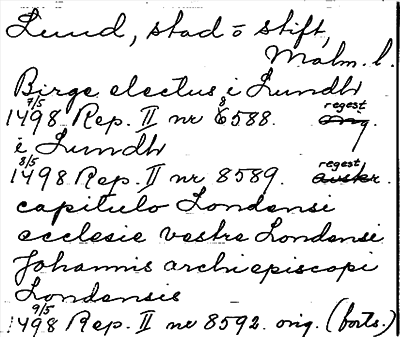 Lund, stad o stift,
Malm. l.
Birge electus i Lundh
7/5 regest
1498 Rep. II nr 8588. Orig.
i Lundh
8/5 regest
1498 Rep. II nr 8589. avskr.
capitulo Londensi
ecclesie vestre Londensi
Johannis archiepiscopi
Londensis
9/5
1498 Rep. II nr 8592. orig. (forts.)